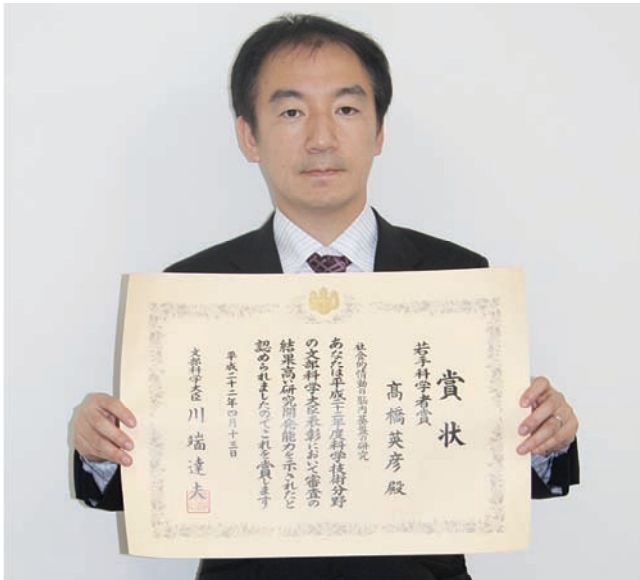 賞状
若手科学者賞
髙橋英彦殿
社会的情動の脳内基盤の研究
あなたは平成二十二年度科学技術分野
の文部科学大臣表彰において審査の
結果高い研究開発能力を示されたと
認められましたのでこれを賞します
平成二十二年四月十三日
文部科学大臣 川端達夫